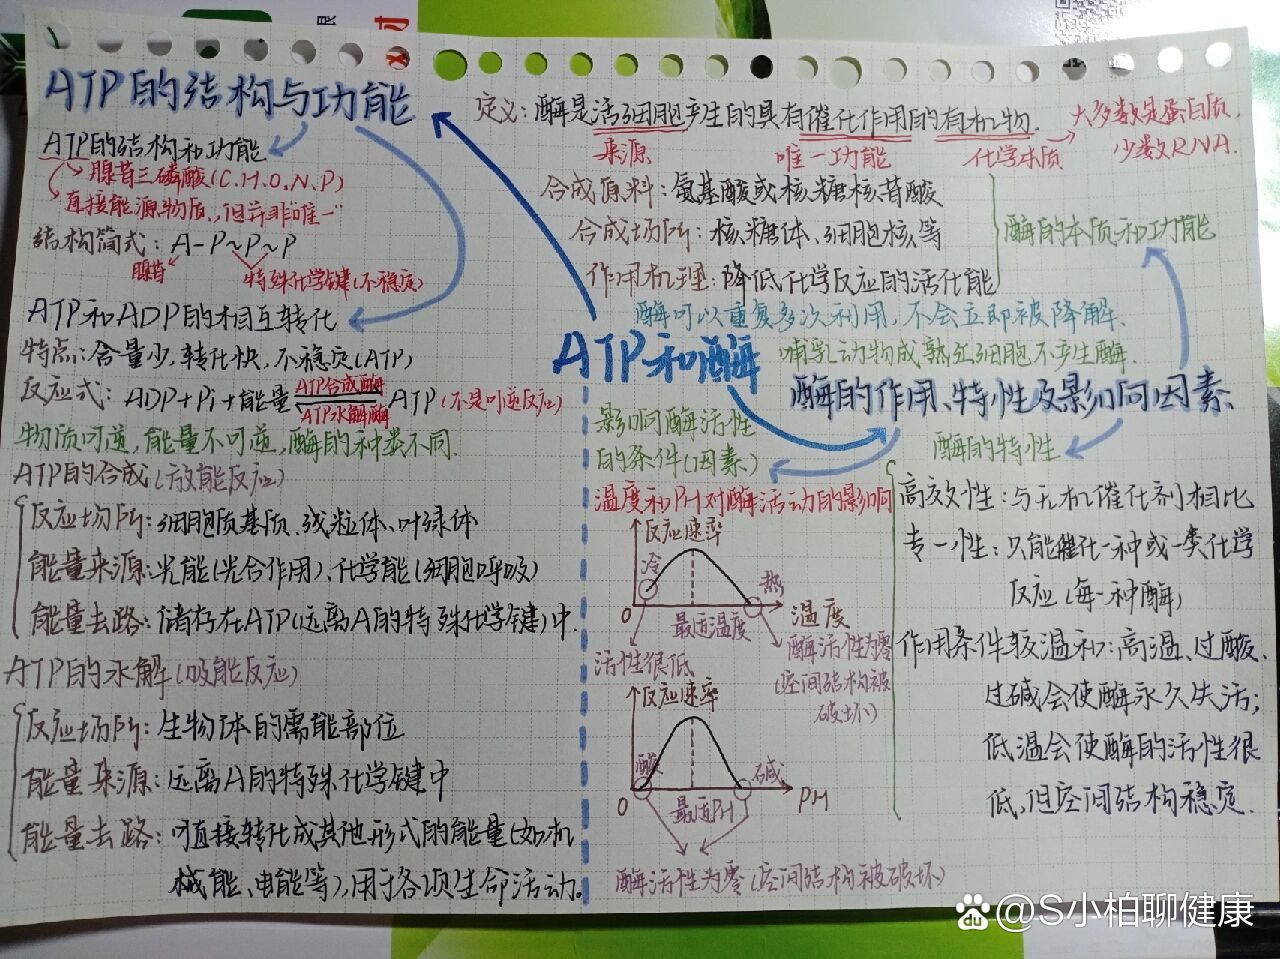 ATP的结构与功能
ATP的结构和功能
腺苷三磷酸(C.H.O.N.P)
直接能源物质,但并非“唯一”
结构简式: A-P~P~P
腺苷
特殊化学键(不稳定)
ATP和ADP的相互转化
特点:含量少,转化快,不稳定(ATP)
反应式: ADP+Pi+能量 ATP合成酶 ATP水解酶 ATP(不是可逆反应)
物质可逆,能量不可逆,酶的种类不同.
ATP的合成(放能反应)
反应场所:细胞质基质、线粒体、叶绿体
能量来源:光能(光合作用)、化学能(细胞呼吸)
能量去路:储存在ATP(远离A的特殊化学键)中.
ATP的水解(吸能反应)
反应场所:生物体的需能部位
能量来源:远离A的特殊化学键中
能量去路:可直接转化成其他形式的能量(如机
械能、电能等),用于各项生命活动。
定义:酶是活细胞产生的具有催化作用的有机物.
来源
唯一功能
化学本质
大多数是蛋白质,
少数RNA.
合成原料:氨基酸或核糖核苷酸
合成场所:核糖体、细胞核等
作用机理:降低化学反应的活化能
酶的本质和功能
酶可以重复多次利用,不会立即被降解.
哺乳动物成熟红细胞不产生酶.
ATP和酶
酶的作用、特性及影响因素
影响酶活性
的条件(因素)
温度和PH对酶活动的影响
反应速率
冷
热
0
最适温度
温度
活性很低
酶活性为零
(空间结构被
破坏)
反应速率
酸
碱
0
最适PH
PH
酶活性为零(空间结构被破坏)
酶的特性
高效性:与无机催化剂相比
专一性:只能催化一种或一类化学
反应(每一种酶)
作用条件较温和:高温、过酸、
过碱会使酶永久失活;
低温会使酶的活性很
低,但空间结构稳定.
@S小柏聊健康